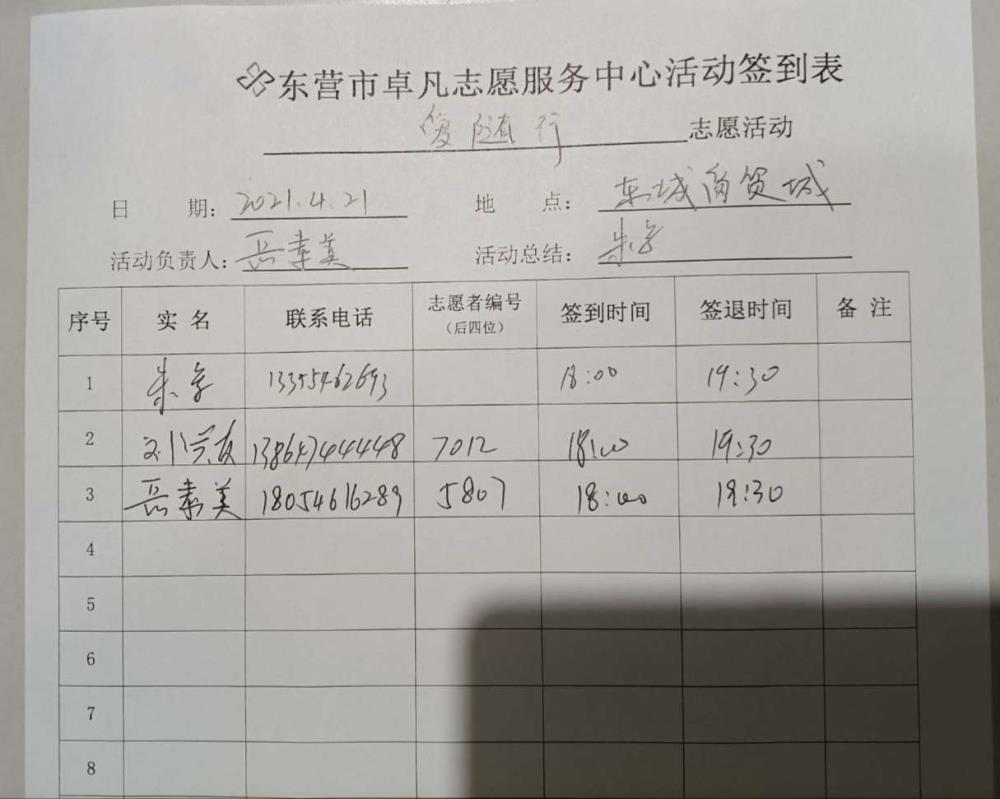 东营市卓凡志愿服务中心活动签到表
爱随行 志愿活动
日 期: 2021.4.21 地 点: 东城商贸城
活动负责人: 岳素美 活动总结: 朱
序号 实名 联系电话 志愿者编号（后四位） 签到时间 签退时间 备注
1 朱 13355462693 18:00 19:30
2 刘兴友 13864744448 7012 18:00 19:30
3 岳素美 18054616289 5807 18:00 19:30
4
5
6
7
8